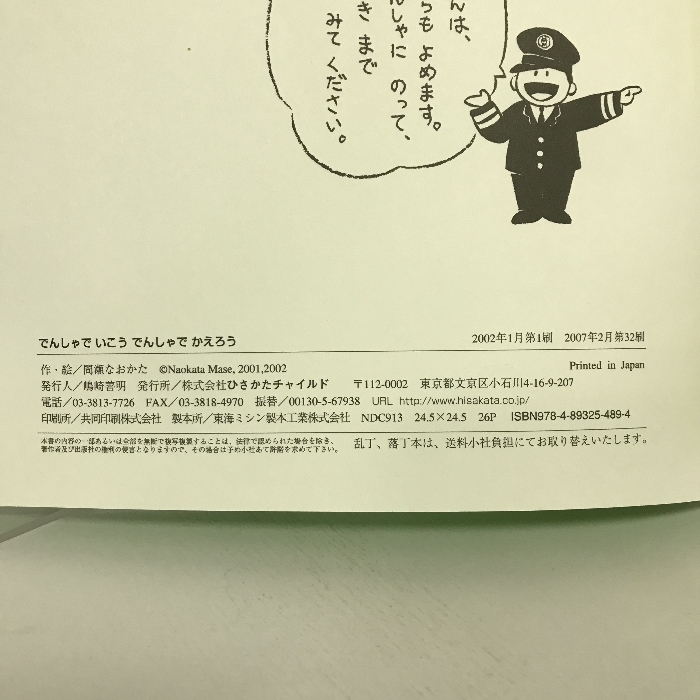 んは、
らも よめます。
んしゃに のって、
き まで
みて ください。
でんしゃで いこう でんしゃで かえろう
2002年1月第1刷 2007年2月第32刷
作・絵／間瀬なおかた ©Naokata Mase, 2001,2002
Printed in Japan
発行人／嶋崎善明 発行所／株式会社ひさかたチャイルド 〒112-0002 東京都文京区小石川4-16-9-207
電話／03-3813-7726 FAX／03-3818-4970 振替／00130-5-67938 URL http://www.hisakata.co.jp/
印刷所／共同印刷株式会社 製本所／東海ミシン製本工業株式会社 NDC913 24.5×24.5 26P ISBN978-4-89325-489-4
本書の内容の一部あるいは全部を無断で複写複製することは、法律で認められた場合を除き、
著作者及び出版社の権利の侵害となりますので、その場合は予め小社あて許諾を求めて下さい。
乱丁、落丁本は、送料小社負担にてお取り替えいたします。